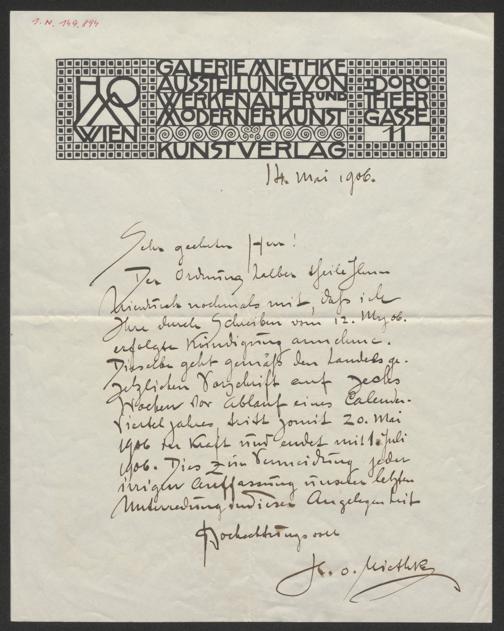 I.N. 149.894
GALERIE MIETHKE
AUSSTELLUNG VON
WERKEN ALTER UND
MODERNER KUNST
KUNSTVERLAG
HOM
WIEN
I DORO
THEER
GASSE
11
14. Mai 1906.
Sehr geehrter Herr!
Der Ordnung halber theile Ihnen
hiedurch nochmals mit, daß ich
Ihre durch Schreiben vom 12. May 06.
erfolgte Kündigung annehme.
Dieselbe geht gemäß den Landesge-
setzlichen Vorschrift auf sechs
Wochen vor Ablauf eines Calender-
Vierteljahres, tritt somit 20. Mai
1906 in Kraft und endet mit Juli
1906. Dies zur Vermeidung jeder
irrigen Auffassung unserer letzten
Unterredung in dieser Angelegenheit
Hochachtungsvoll
H. O. Miethke